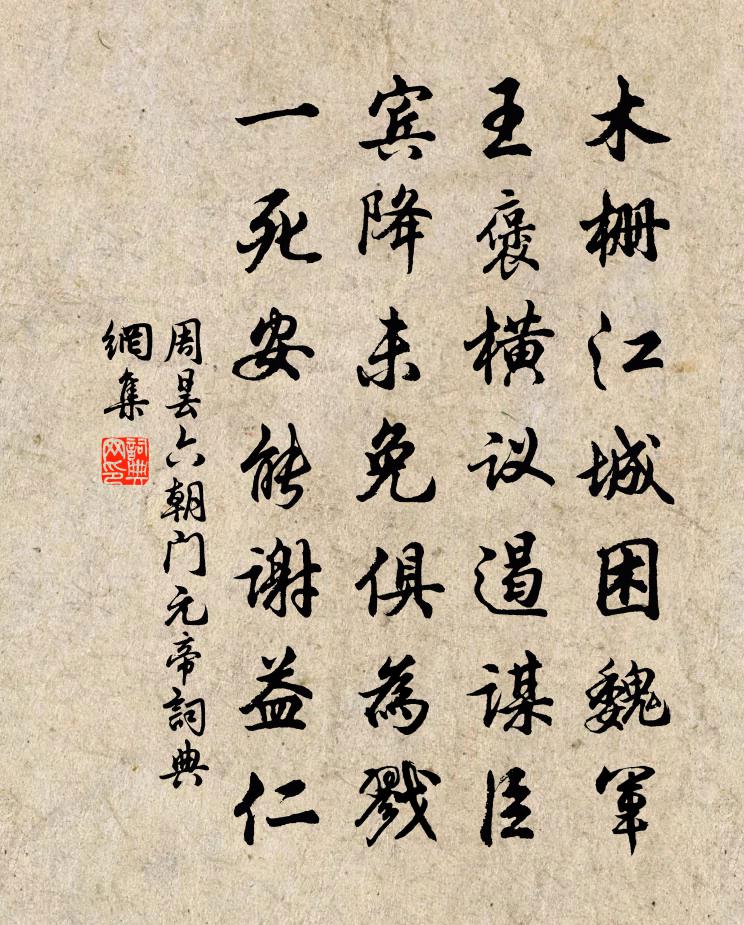 木栅江城困魏军
王褒横议遏谋臣
宾降未免俱為戮
一死安能谢益仁
周昙六朝门元帝詞典
網集
詞典
网印